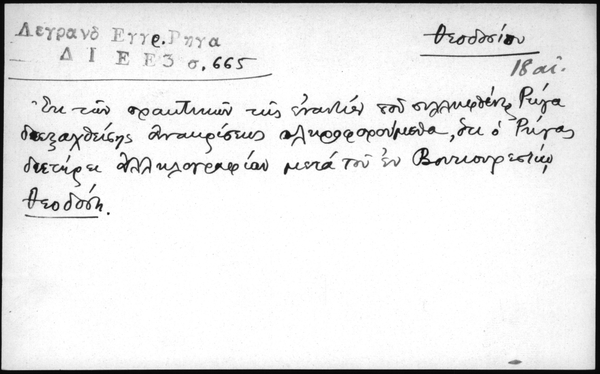 Λεγρανδ Εγγρ. Ρηγα
Δ Ι Ε Ε 3 σ. 665
Θεοδοσίου
18 αἰ.
Ἐκ τῶν πρακτικῶν τῆς ἐναντίον τοῦ συλληφθέντος Ρήγα
διεξαχθείσης ἀνακρίσεως πληροφορούμεθα, ὅτι ὁ Ρήγας
διετήρει ἀλληλογραφίαν μετὰ τοῦ ἐν Βουκουρεστίῳ
Θεοδόση.